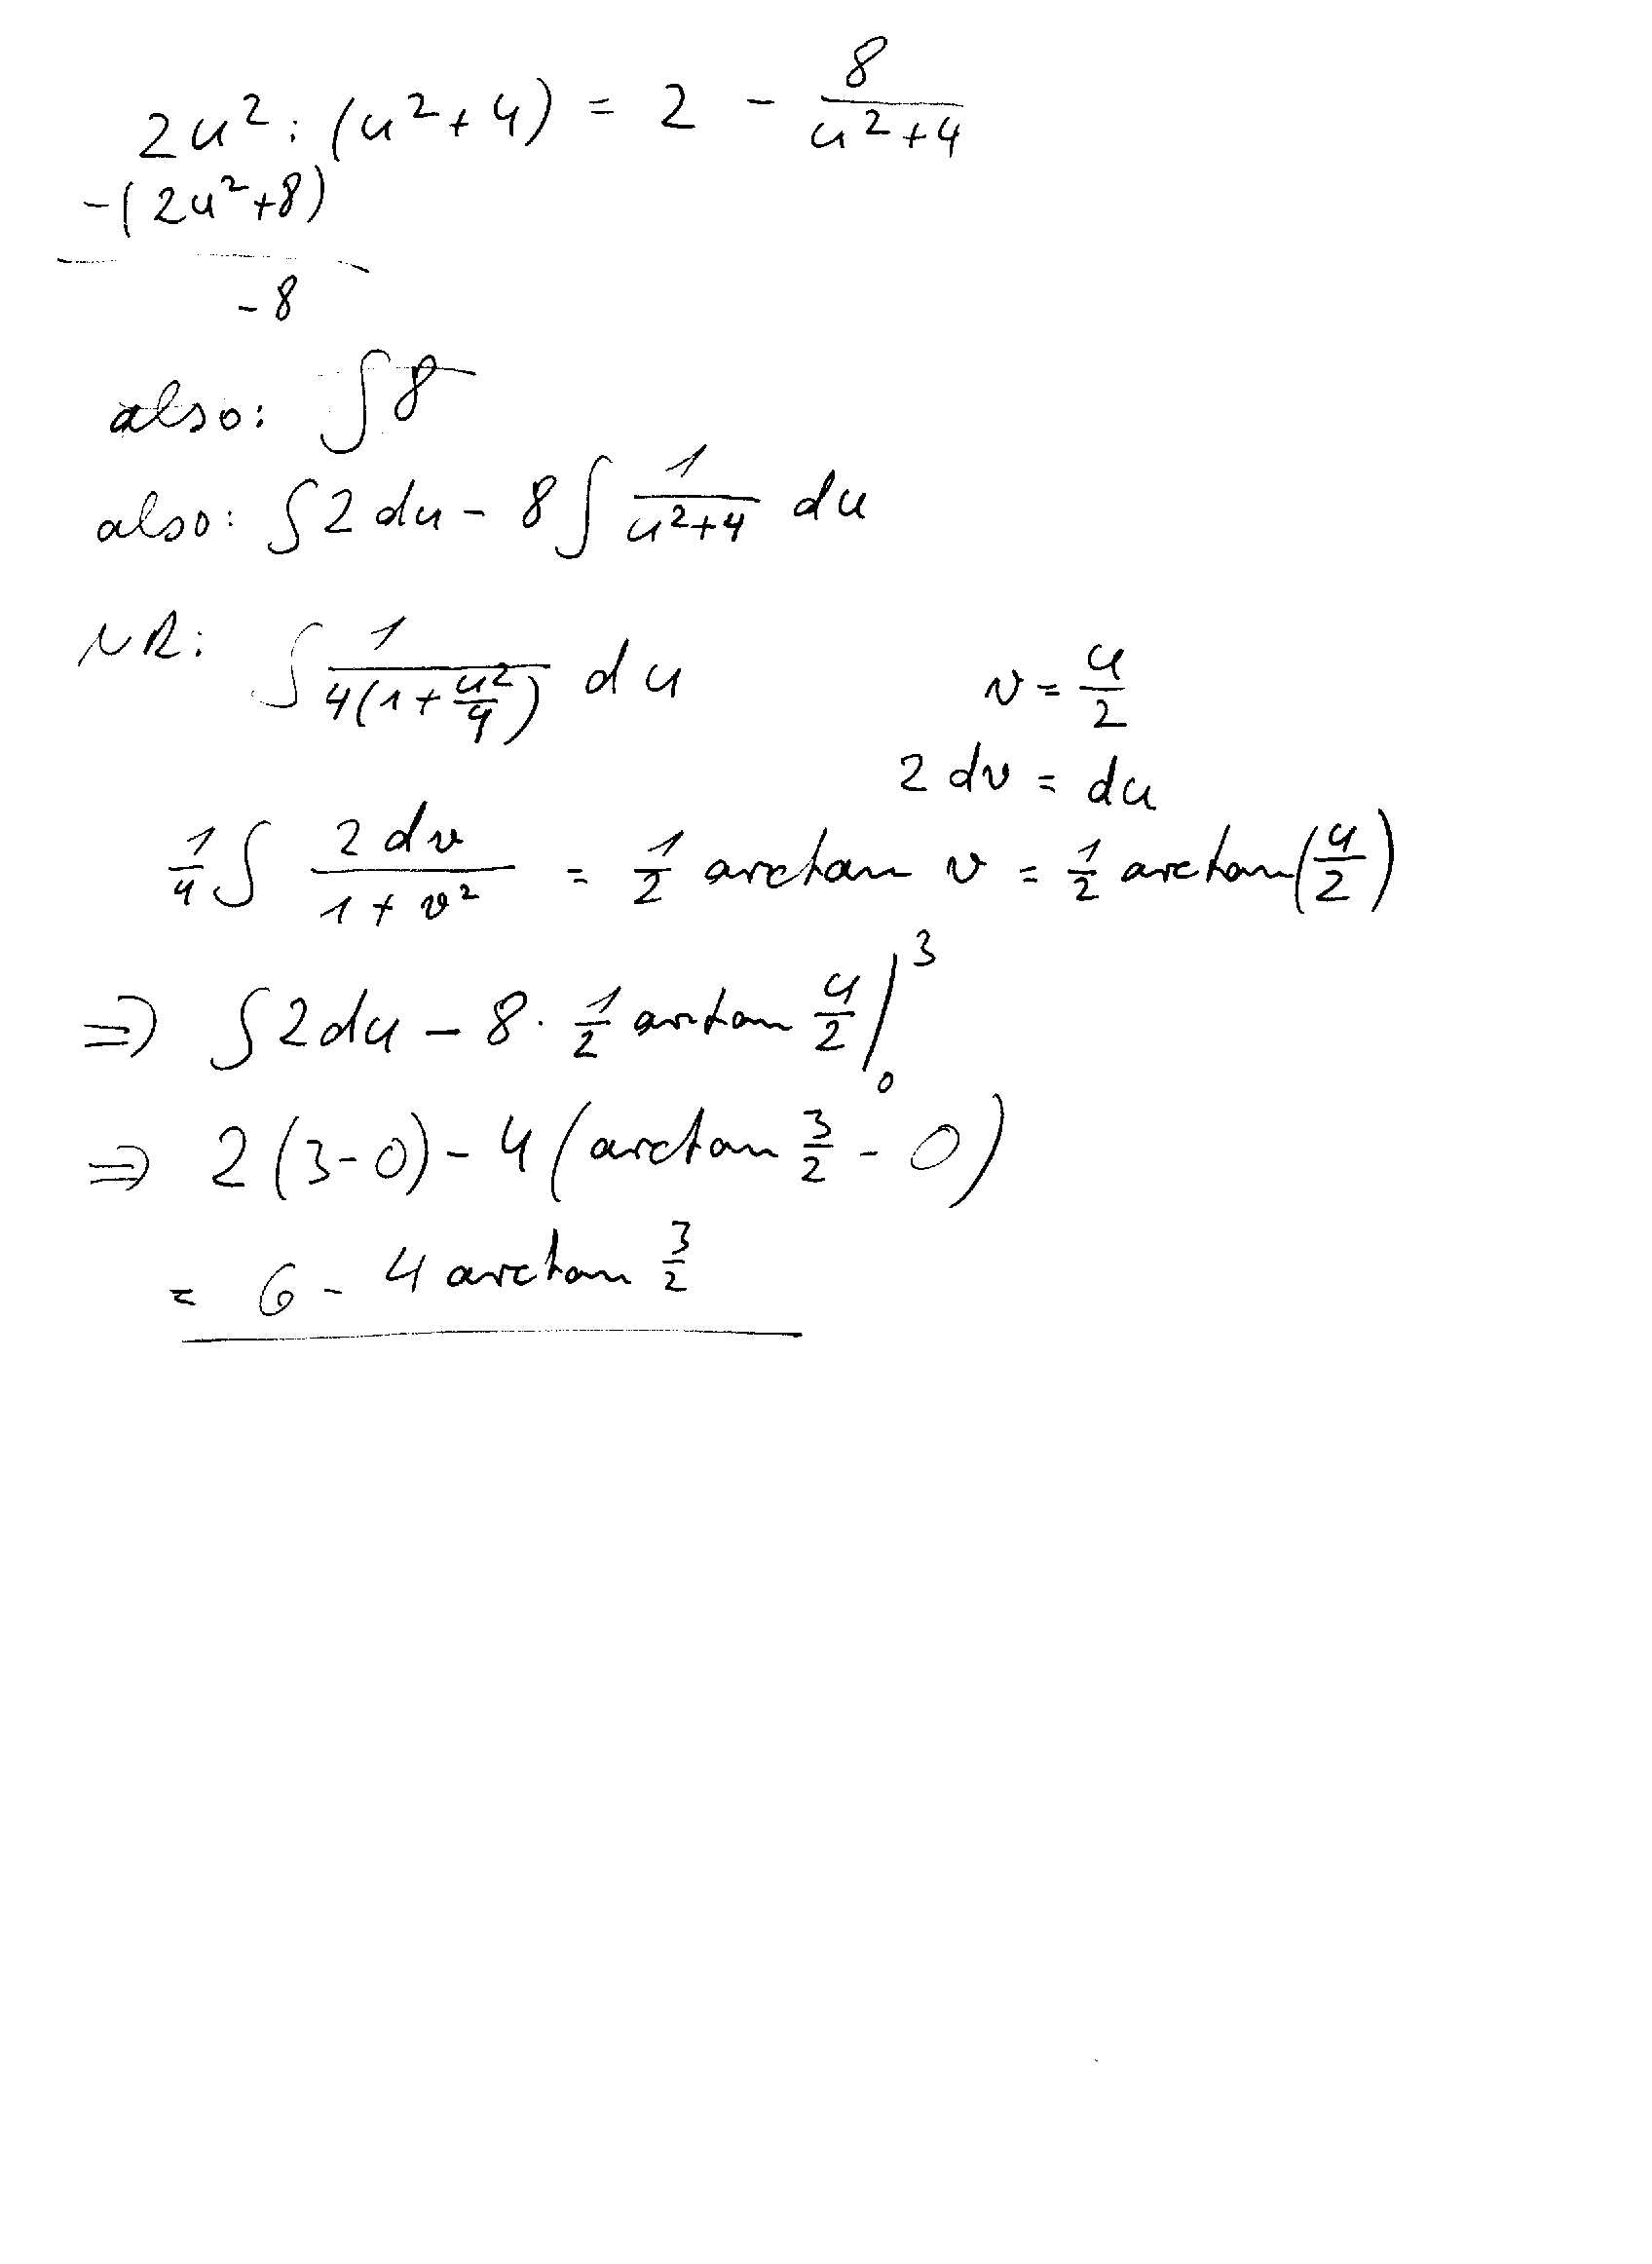 2u² : (u² + 4) = 2 - 8/(u² + 4)
-(2u² + 8)
-8
also: ∫ 8
also: ∫ 2 du - 8 ∫ 1/(u² + 4) du
NR: ∫ 1/(4(1 + u²/4)) du
v = u/2
2 dv = du
1/4 ∫ 2 dv/(1 + v²) = 1/2 arctan v = 1/2 arctan(u/2)
⇒ ∫ 2 du - 8 · 1/2 arctan u/2 |₀³
⇒ 2(3 - 0) - 4(arctan 3/2 - 0)
= 6 - 4 arctan 3/2